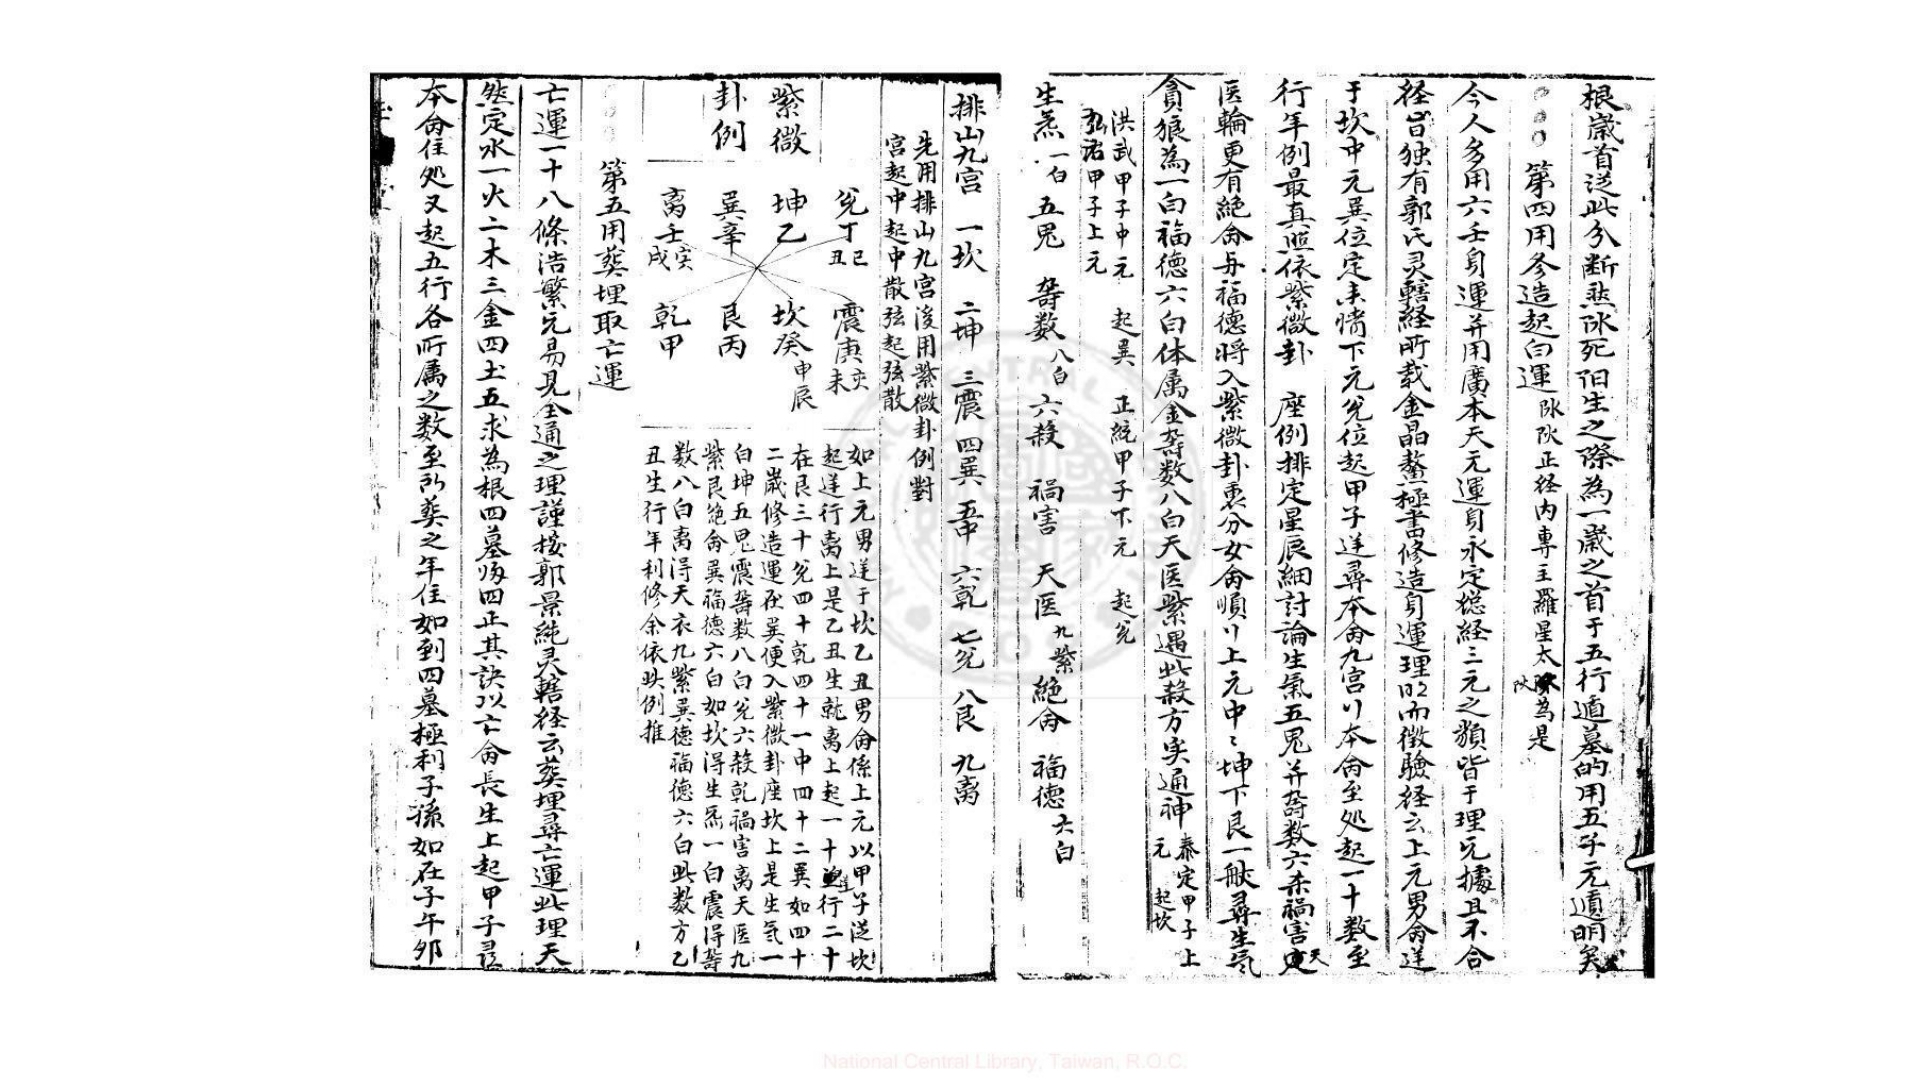 根歳首送此分断烝休死旧生之際為一歳之首于五行遁墓的用五子元遁明矣
第四用修造起白運
正径内專主羅星太
為是
今人多用六壬身運并用廣本天元運身永定総経三元之類皆于理元據且不合
径旨独有郭氏灵轄経所载金晶鰲極書修造身運理明而徴驗径云上元男命送
于坎中元巽位定未情下元兊位起甲子送尋本命九宫以本命至处起一十数至
行年例最真照依紫微卦 座例排定星辰細討論生氣五鬼并等数六杀禍害天
医輪更有絶命与福德将入紫微卦裏分女命順以上元中〻坤下艮一般尋生气
貪狼為一白福德六白体属金等数八白天医紫遇此殺方実通神
泰定甲子上
元 起坎
洪武甲子中元 起巽 正統甲子下元 起兊
弘治甲子上元
生炁 一白 五鬼 等数 八白 六殺 禍害 天医 九紫 絶命 福德 六白
排山九宫 一坎 二坤 三震 四巽 五中 六乾 七兊 八艮 九离
先用排山九宫後用紫微卦例對
宫起中起中散弦起弦散
紫微
卦例
兊丁 巳丑
坤乙
巽辛
离壬 寅戌
震庚 亥未
坎癸 申辰
艮丙
乾甲
如上元男逆于坎乙丑男命係上元以甲子送坎
起逆行离上是乙丑生就离上起一十逆行二十
在艮三十兊四十乾四十一中四十二巽如四十
二歳修造運在巽便入紫微卦座坎上是生气一
白坤五鬼震等数八白兊六殺乾禍害离天医九
紫艮絶命巽福德六白如坎得生炁一白震得等
数八白离得天衣九紫巽德福德六白此数方乙
丑生行年利修余依此例推
第五用葵埋取亡運
亡運一十八條浩繁元易見全通之理謹按郭景純灵轄径云葵埋尋亡運此理天
然定水一火二木三金四土五求為根四墓归四正其訣以亡命長生上起甲子尋
本命住处又起五行各所属之数至所葵之年住如到四墓極利子孫如在子午卯